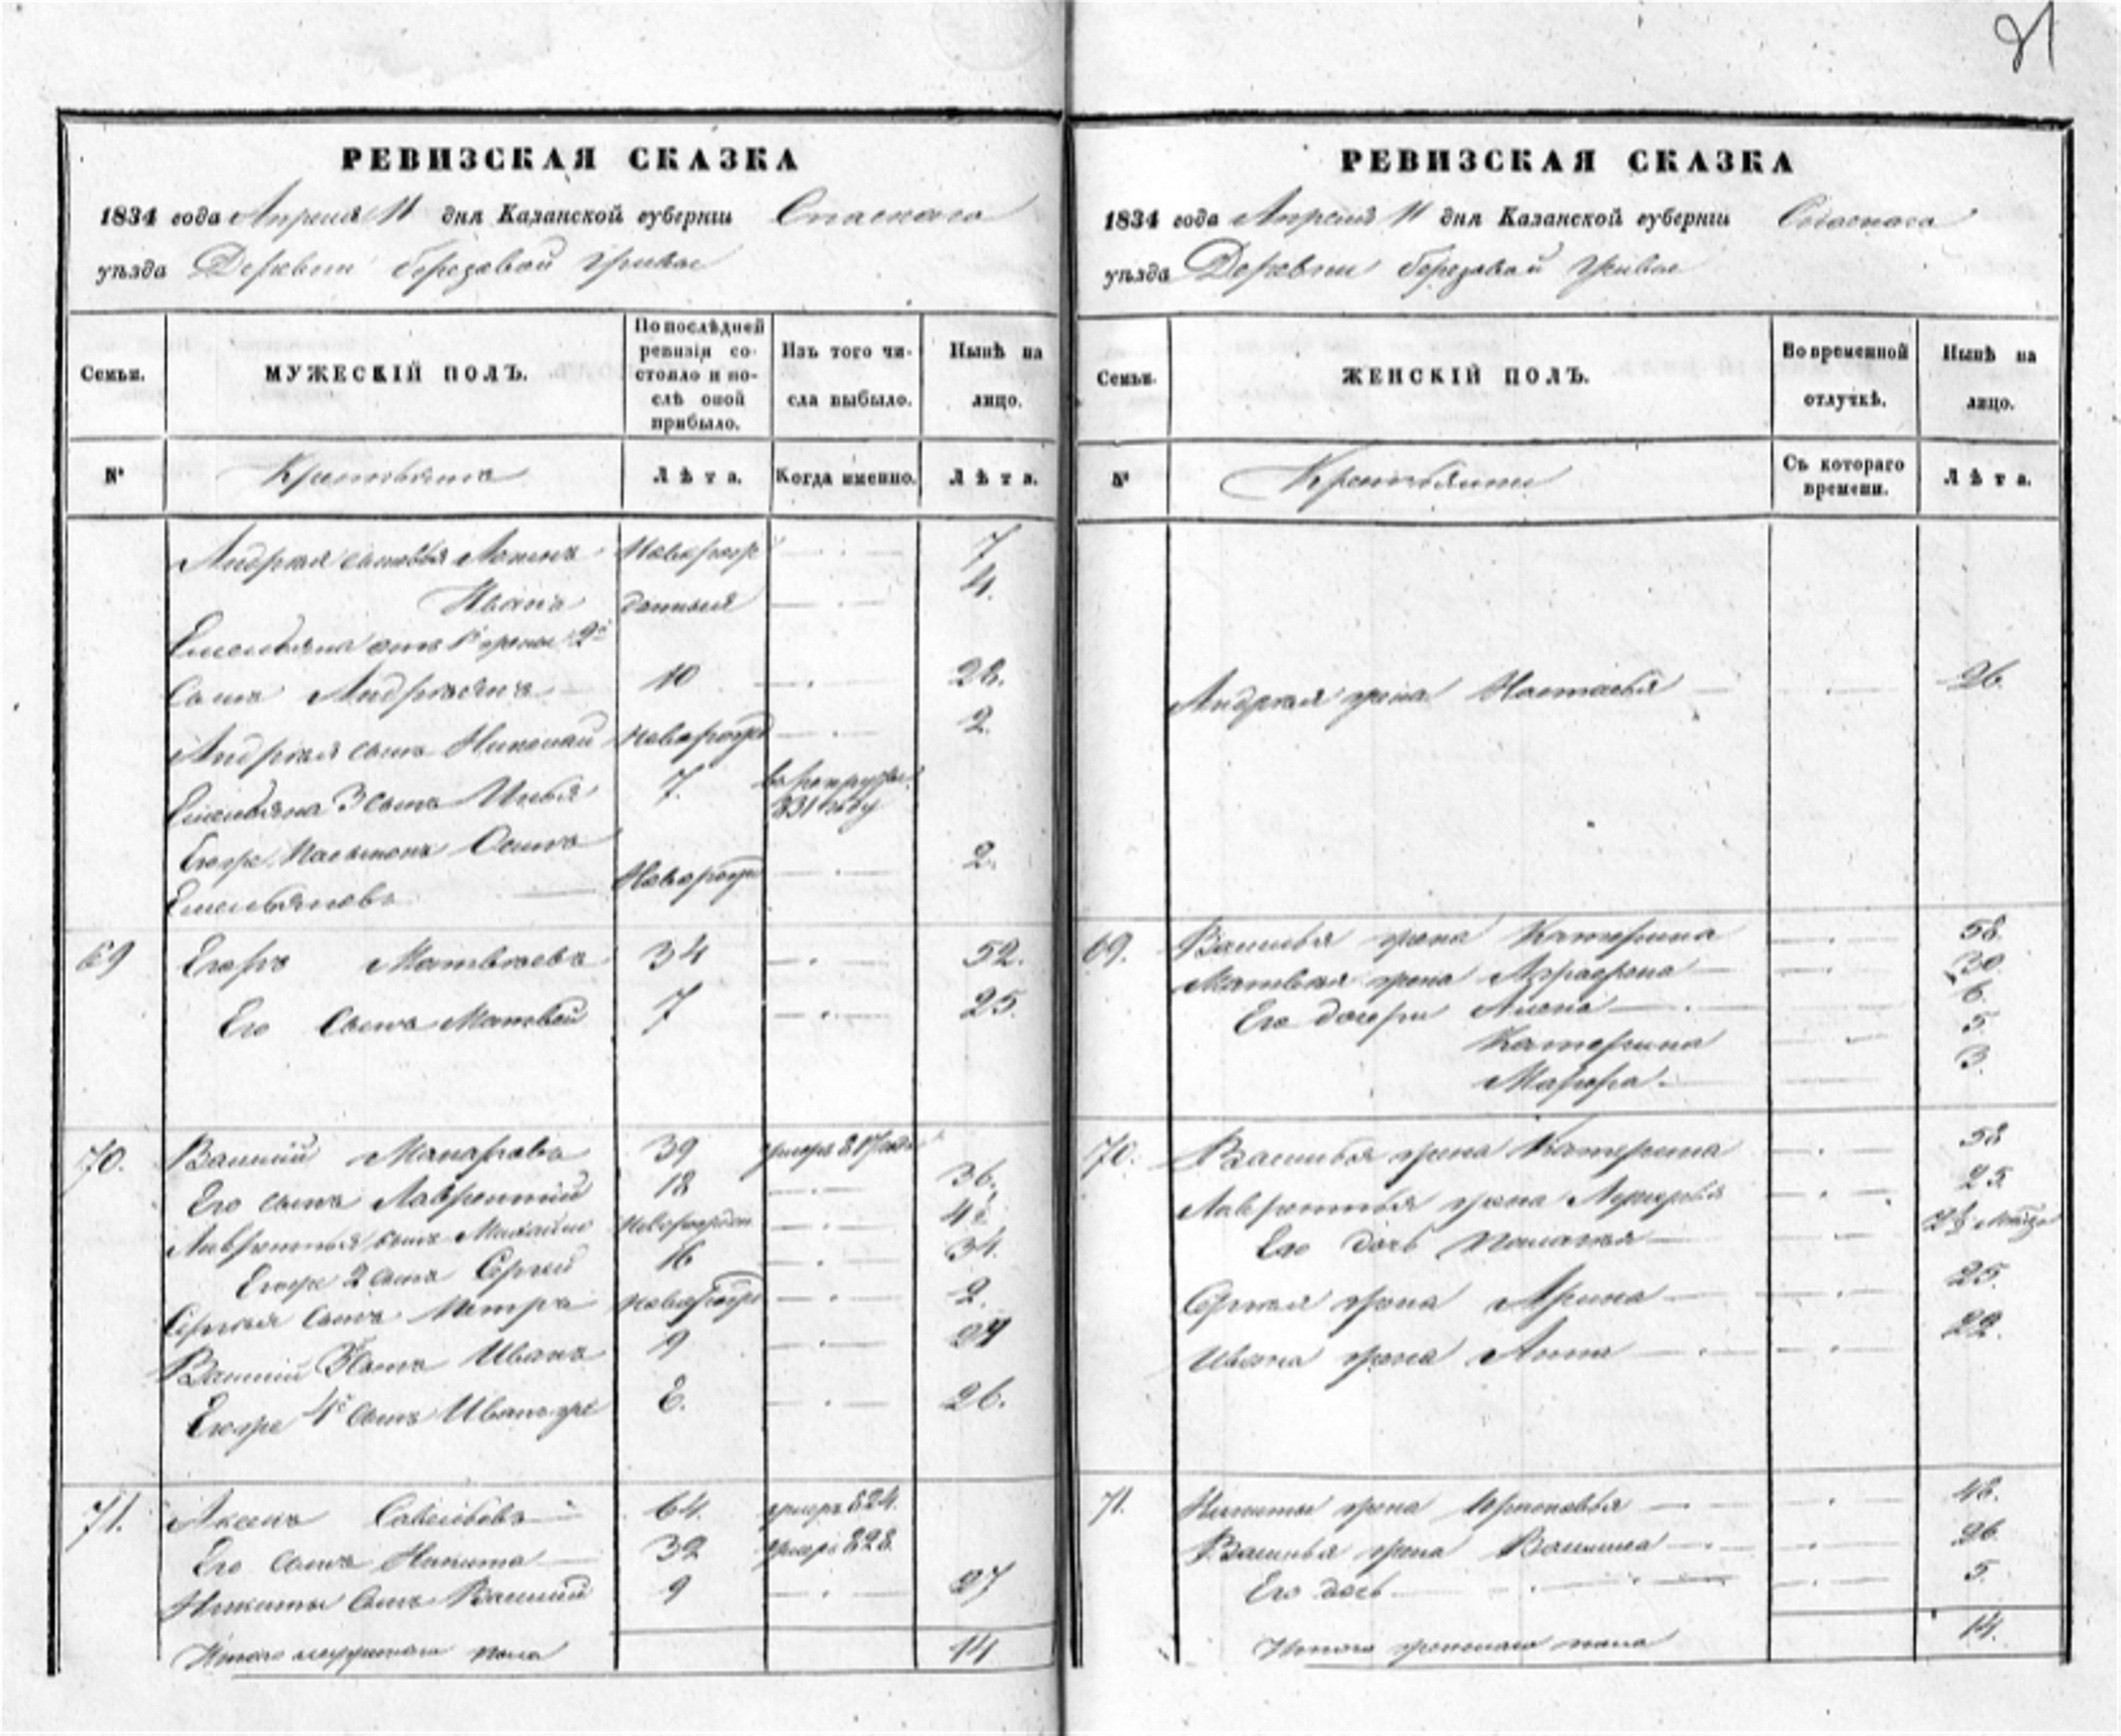 21
РЕВИЗСКАЯ СКАЗКА
1834 года Апреля 11 дня Казанской губерніи Спаскаго
уѣзда Деревни березовой гривы
Семьи.
МУЖЕСКІЙ ПОЛЪ.
По послѣдней ревизіи состояло и послѣ оной прибыло.
Изъ того числа выбыло.
Нынѣ на лицо.
№
Крестьяне
Лѣта.
Когда именно.
Лѣта.
Андрея сыновья 7
Иванъ 4.
Емельяна 2й
сынъ Андреянъ 10 28.
Андрея сынъ Николай новорожд 2.
Емельяна 3 сынъ Илья 7. в рекруты 831 году
Егоръ Осипъ
Емельяновъ новорожд 2.
69 Егоръ Матвѣевъ 34 52.
Его сынъ Матвей 7 25.
70. Василий Макаровъ 39 умеръ 817 года
Его сынъ Лаврентий 18 36.
Лаврентья сынъ Михайло новорожден
Егоже 2 сынъ Сергей 16 34.
Сергея сынъ Петръ новорожд 2.
Василий 3 сынъ Иванъ 9 27
Егоже 4й сынъ Иванъ же 8. 26.
71. Аксенъ Савельевъ 64. умеръ 824.
Его сынъ Никита 32 умеръ 828.
Никиты сынъ Василий 9 27
Итого мужескаго пола 14
РЕВИЗСКАЯ СКАЗКА
1834 года Апреля 11 дня Казанской губерніи Спаскаго
уѣзда Деревни березовой гривы
Семьи.
ЖЕНСКІЙ ПОЛЪ.
Во временной отлучкѣ.
Нынѣ на лицо.
№
Крестьянки
Съ котораго времени.
Лѣта.
Андрея жена Настасья 26
69. Василья жена Катерина 58.
Матвея жена 30.
Его дочери 6.
Катерина 5.
Марфа 3.
70. Василья жена Катерина 58
Лаврентья жена Лукерья 25
Его дочь Пелагея
Сергея жена Арина 25.
Ивана жена Анна 22.
71. Никиты жена Прасковья 48.
Василья жена Василиса 26.
Его дочь 5.
Итого женскаго пола 14.